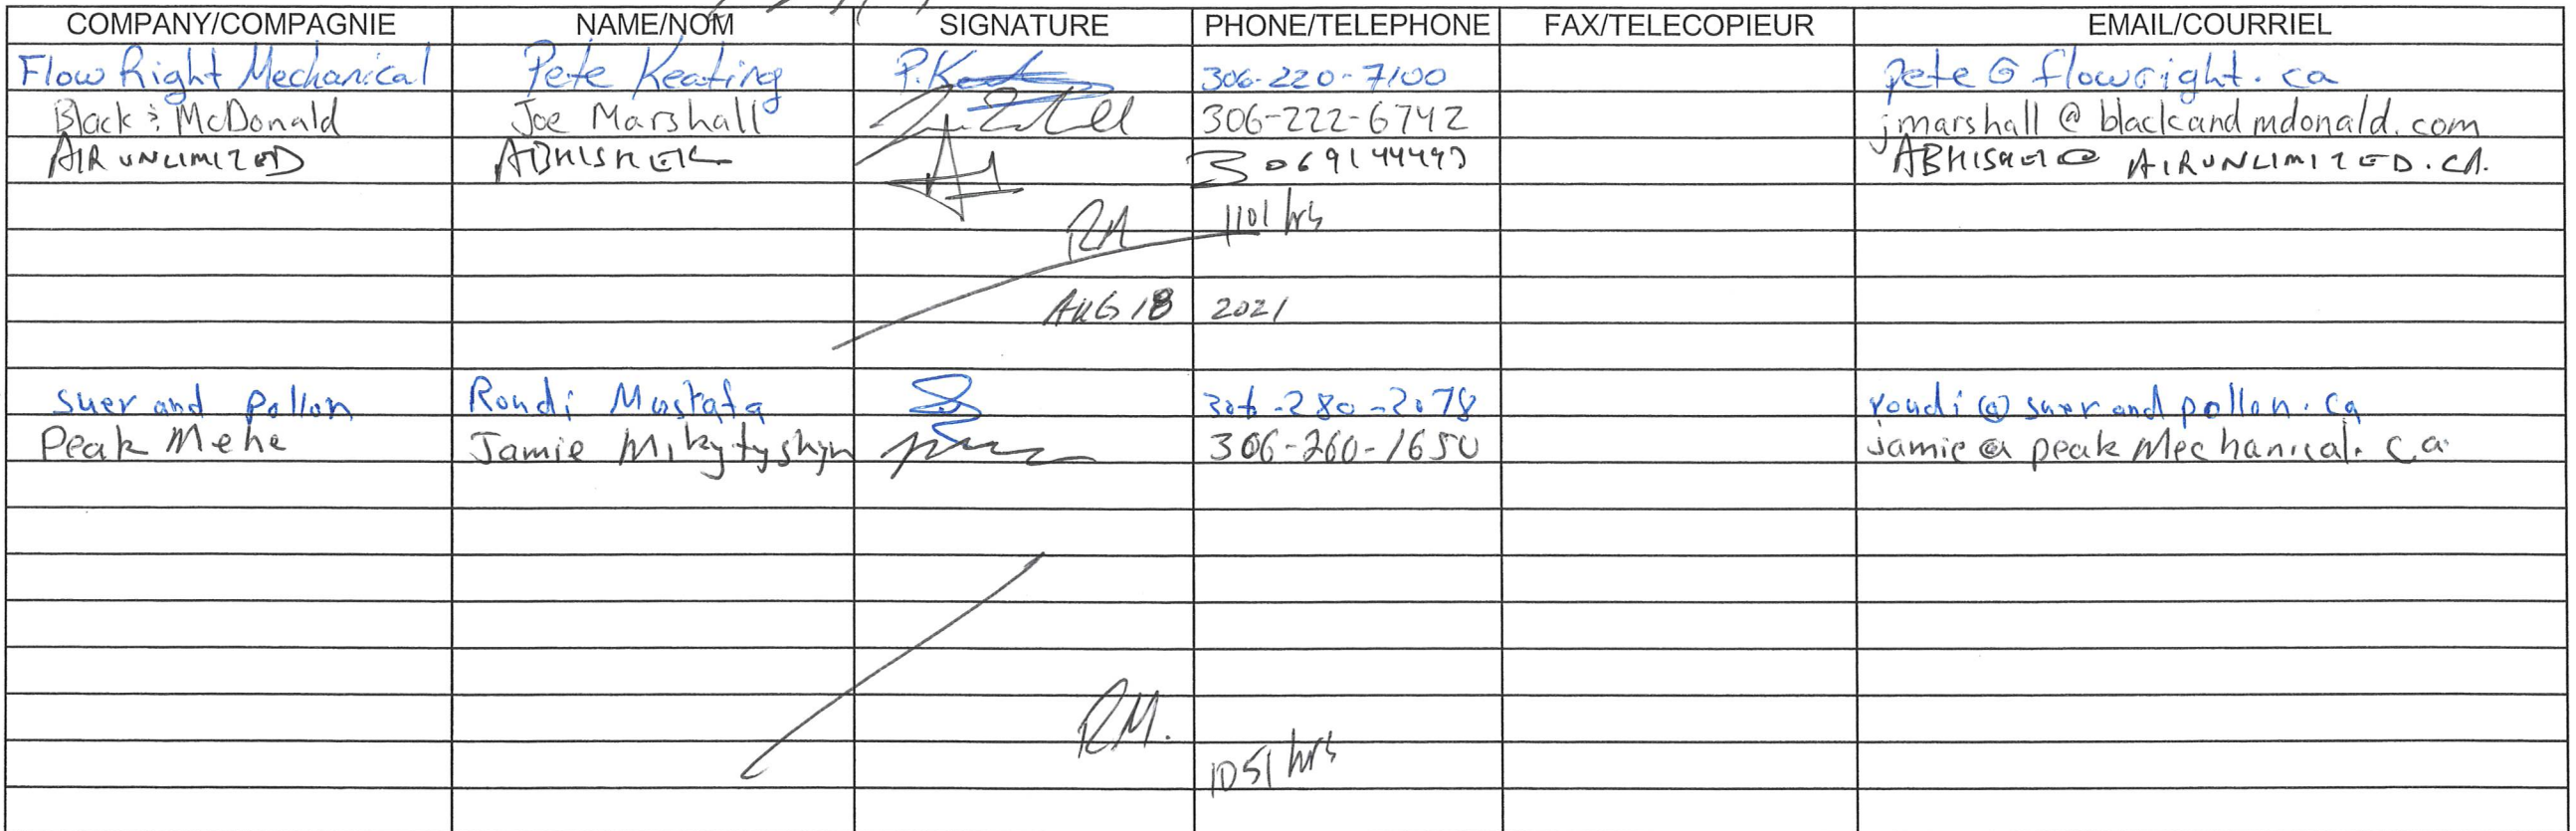 COMPANY/COMPAGNIE NAME/NOM SIGNATURE PHONE/TELEPHONE FAX/TELECOPIEUR EMAIL/COURRIEL
Flow Right Mechanical Pete Keating P.Keat 306-220-7100 pete@flowright.ca
Black & McDonald Joe Marshall 306-222-6742 jmarshall@blackandmdonald.com
AIR UNLIMIZED ABHISHEK AIRUNLIMIZED.CA.
1101 hrs
AUG 18 2021
suer and pollon Roudi Mustafa 306-280-2078 roudi@suerandpollon.ca
Peak Mehe Jamie Mikytyshyn 306-260-1650 jamie@peakMechanical.ca
RM.
1051 hrs